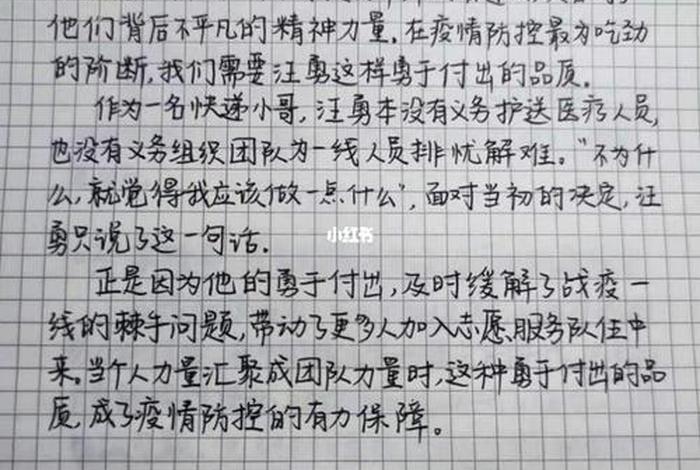 他们背后不平凡的精神力量。在疫情防控最为吃劲
的阶断,我们需要汪勇这样勇于付出的品质。
作为一名快递小哥,汪勇本没有义务护送医疗人员,
也没有义务组织团队为一线人员排忧解难。“不为什
么,就觉得我应该做一点什么”,面对当初的决定,汪
勇只说了这一句话。
小红书
正是因为他的勇于付出,及时缓解了战疫一
线的棘手问题,带动了更多人加入志愿服务队伍中
来。当个人力量汇聚成团队力量时,这种勇于付出的品
质,成了疫情防控的有力保障。